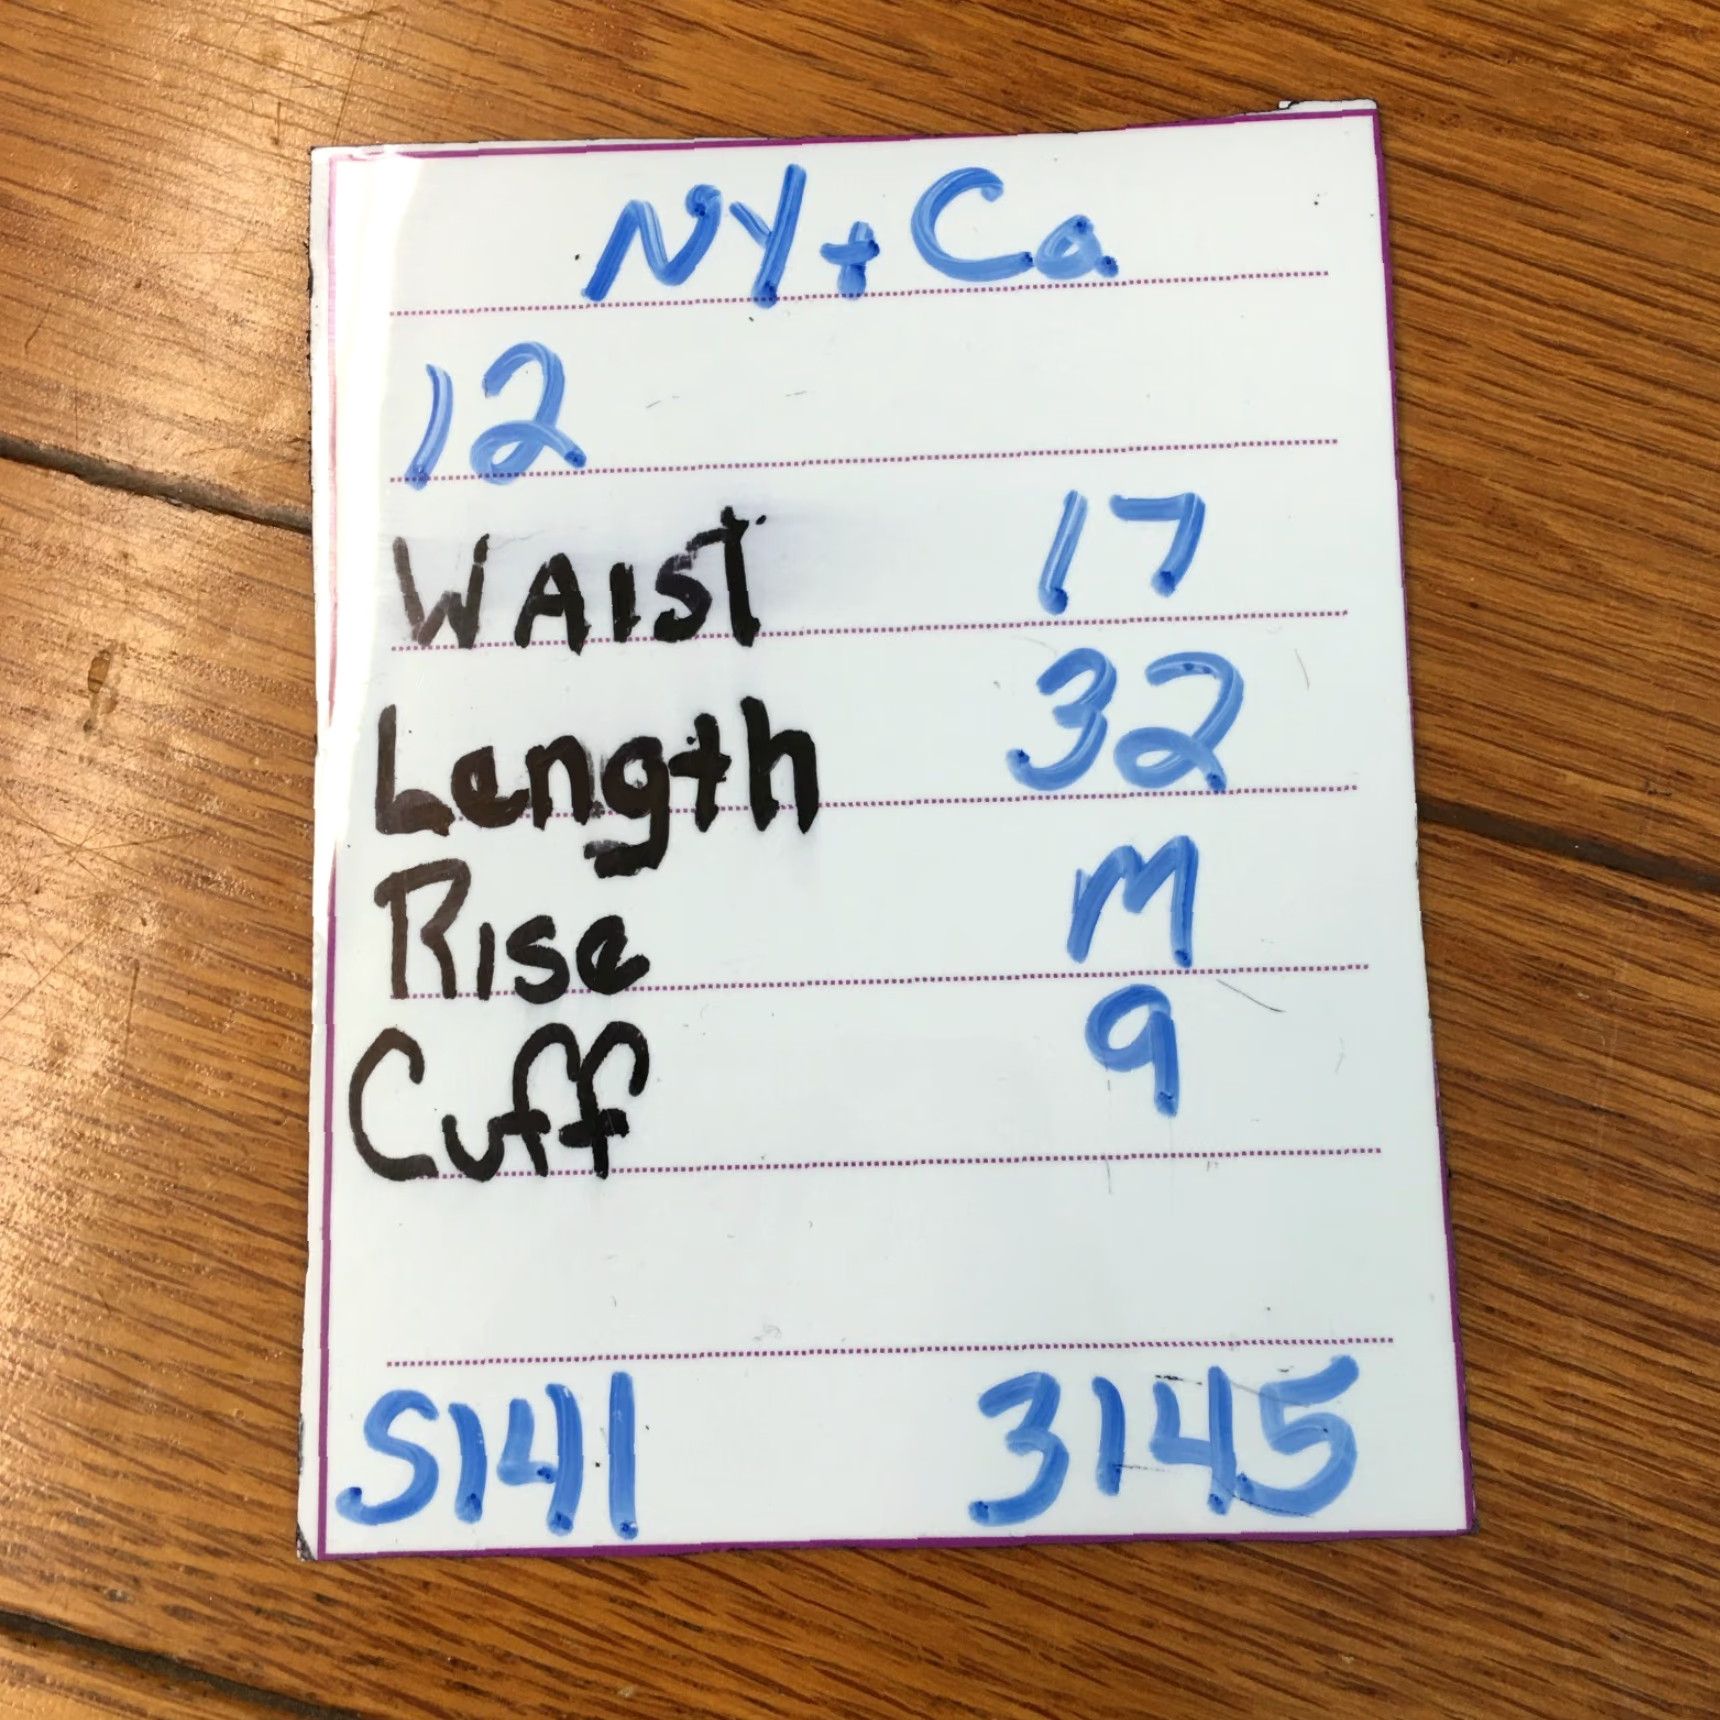 NY+Co.
12
WAIST 17
Length 32
Rise M
Cuff 9
S141 3145